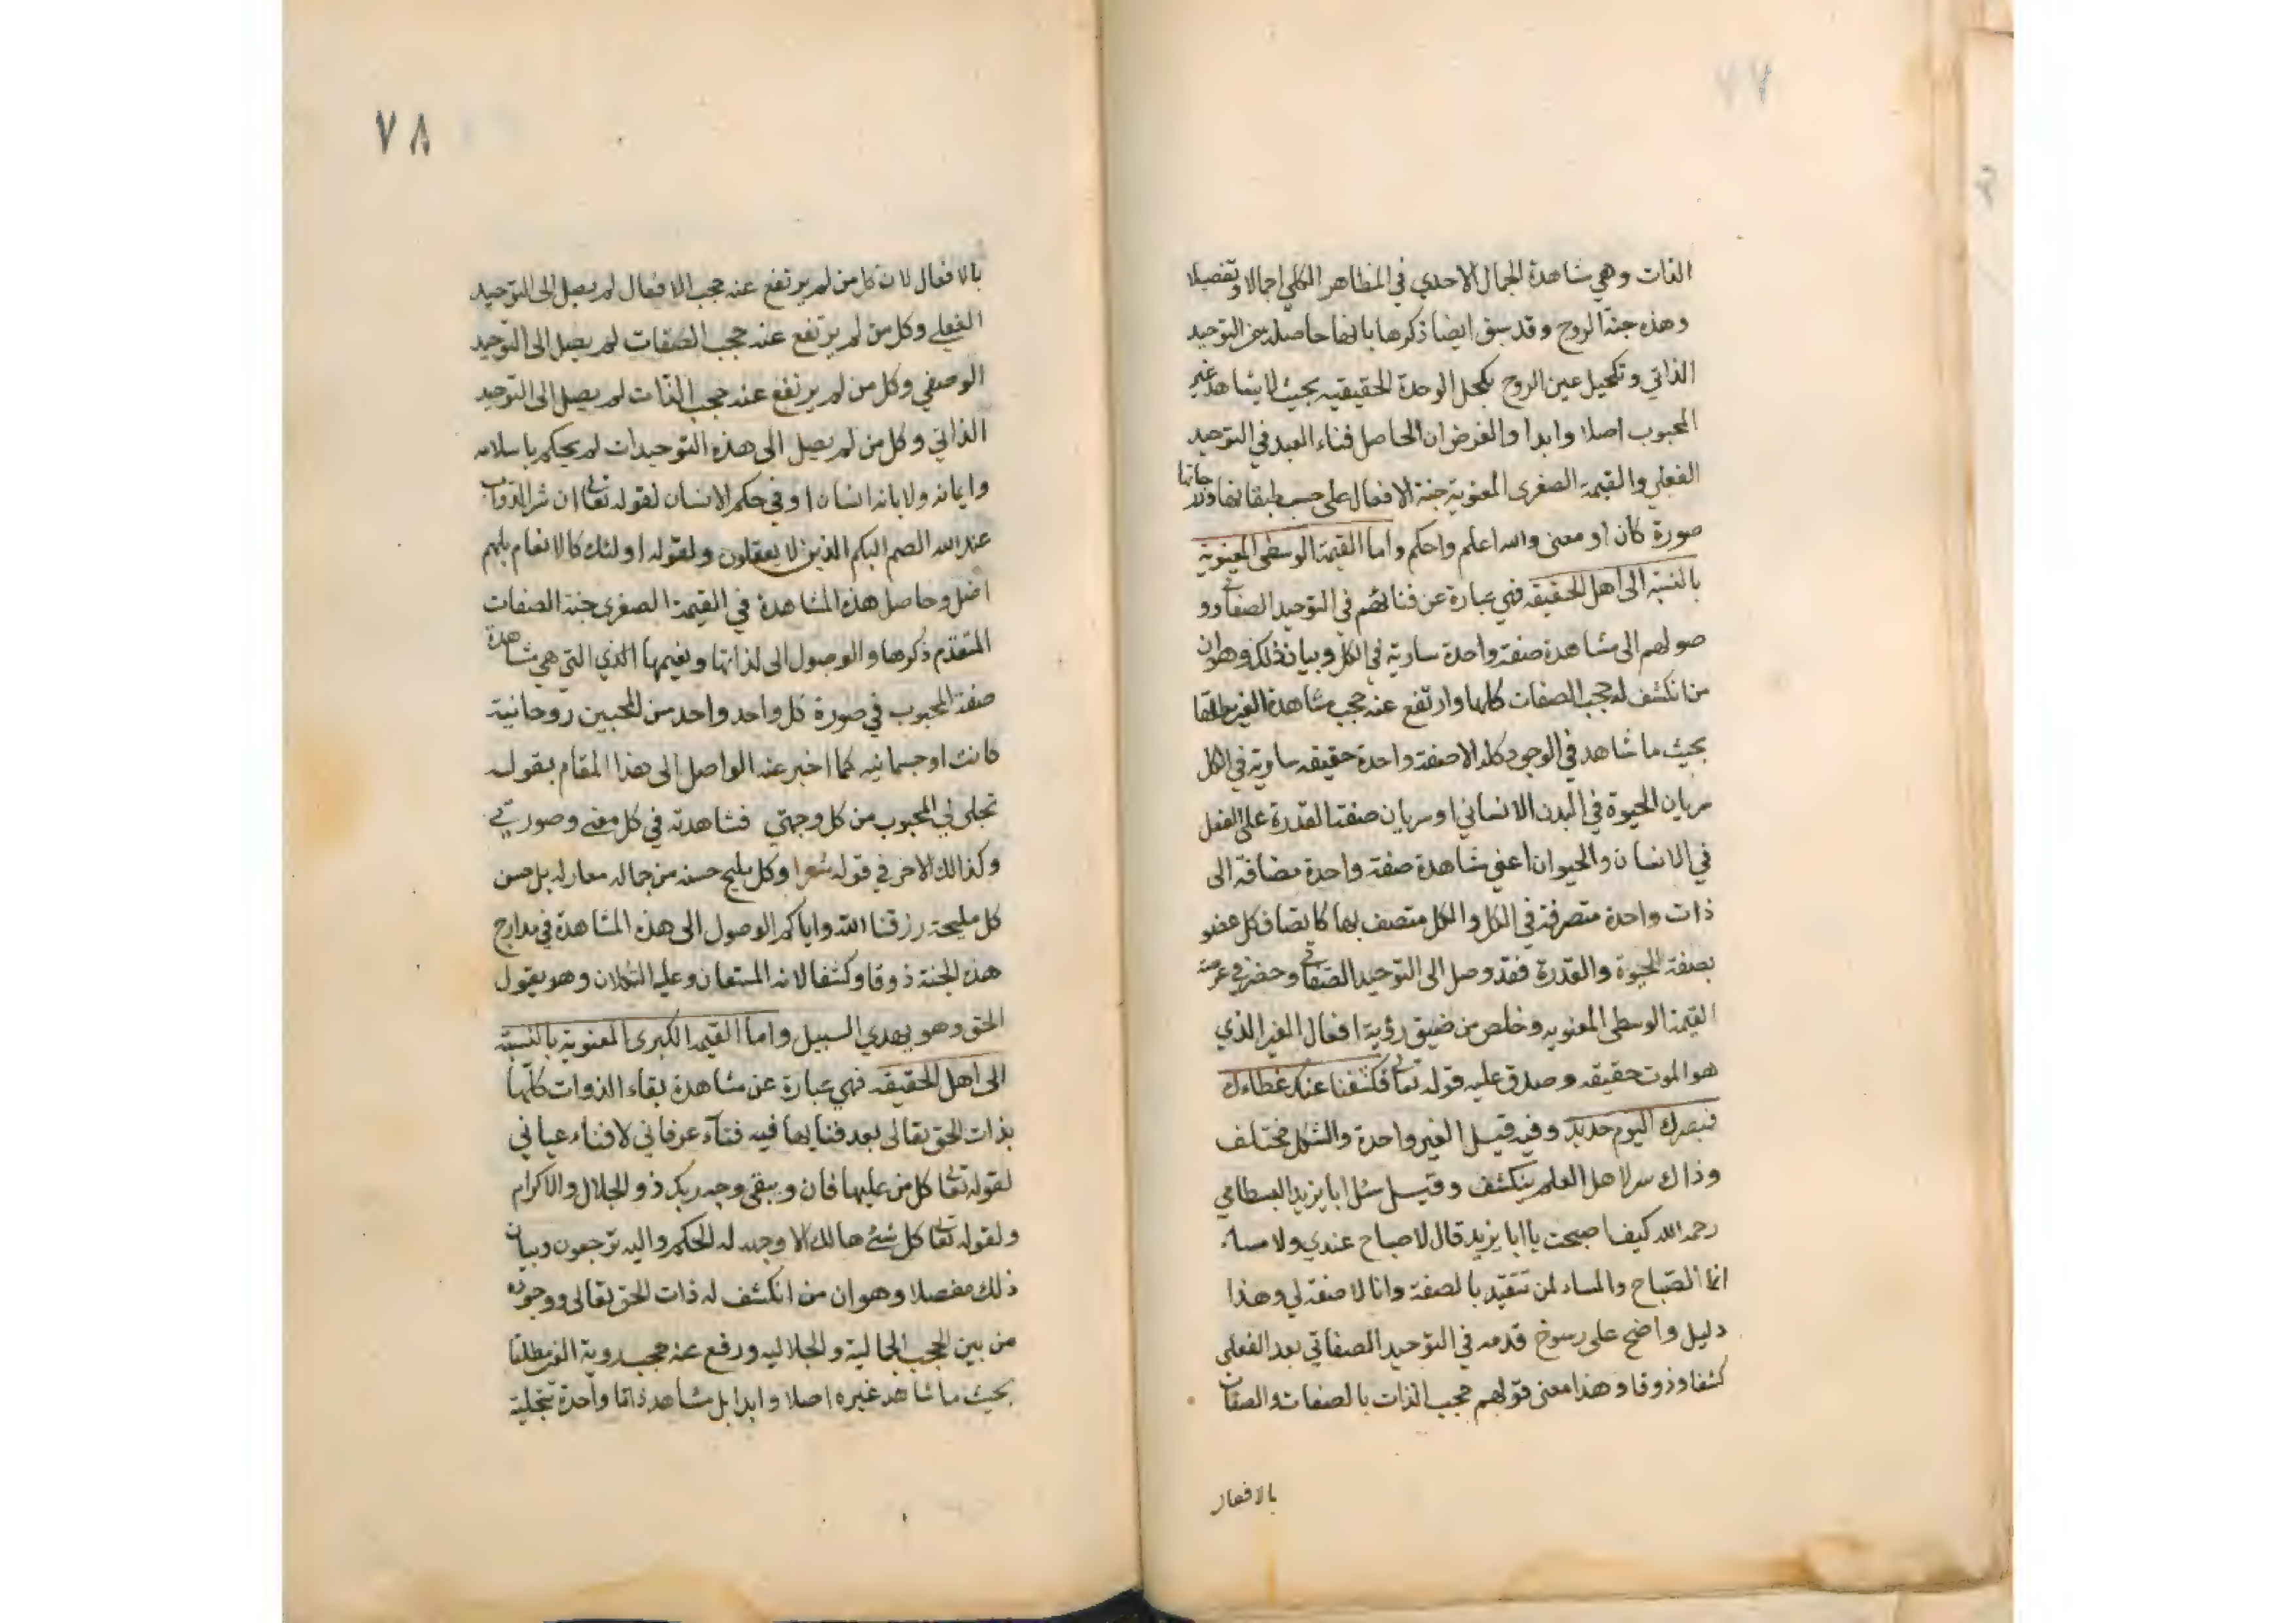 ٧٧
الذات وهي مشاهدة الجمال الاحدي في المظاهر الكلي اجمالا وتفصيلا
وهذه جنة الروح وقد سبق ايضا ذكرها بانها حاصلة من التوحيد
الذاتي وتكحيل عين الروح بكحل الوحدة الحقيقيه بحيث لا يشاهد غير
المحبوب اصلا وابدا والغرض ان الحاصل فناء العبد في التوحيد
الفعلي والقيمة الصغرى المعنوية جنة الافعال على حسب طبقاتها ودرجاتها
صورة كان او معنى والله اعلم واحكم واما القيمة الوسطى المعنوية
بالنسبة الى اهل الحقيقه فهي عبارة عن فنائهم في التوحيد الصفاتي وو
صولهم الى مشاهدة صفة واحدة سارية في الكل وبيان ذلك وهو ان
من انكشف له حجب الصفات كلها وارتفع عنه حجب مشاهدة الغير مطلقا
بحيث ما شاهد في الوجود كله الا صفة واحدة حقيقه سارية في الكل
سريان الحيوة في البدن الانساني او سريان صفة القدرة على الفعل
في الانسان والحيوان اعني مشاهدة صفة واحدة مضافة الى
ذات واحدة متصرفة في الكل والكل متصف بها كاتصاف كل عضو
بصفة الحيوة والقدرة فقد وصل الى التوحيد الصفاتي وحضر في عرصة
القيمة الوسطى المعنويه وخلص من ضيق رؤية افعال الغير الذي
هو الموت حقيقه وصدق عليه قوله تعالى فكشفنا عنك غطاءك
فبصرك اليوم حديد وفيه قيل الغير واحدة والشكل مختلف
وذاك سر لاهل العلم ينكشف وقيل سئل ابا يزيد البسطامي
رحمه الله كيف اصبحت يا ابا يزيد قال لا صباح عندي ولا مساء
انما الصباح والمساء لمن تتقيد بالصفة وانا لا صفة لي وهذا
دليل واضح على رسوخ قدمه في التوحيد الصفاتي بعد الفعلي
كشفا وذوقا وهذا معنى قولهم حجب الذات بالصفات والصفات
بالافعال
٧٨
بالافعال لان كل من لم يرتفع عنه حجب الافعال لم يصل الى التوحيد
الفعلي وكل من لم يرتفع عنه حجب الصفات لم يصل الى التوحيد
الوصفي وكل من لم يرتفع عنه حجب الذات لم يصل الى التوحيد
الذاتي وكل من لم يصل الى هذه التوحيدات لم يحكم باسلامه
وايمانه ولا بانه انسان او في حكم الانسان لقوله تعالى ان شر الدواب
عند الله الصم البكم الذين لا يعقلون ولقوله اولئك كالانعام بل هم
اضل وحاصل هذه المشاهدة في القيمة الصغرى جنة الصفات
المتقدم ذكرها والوصول الى لذاتها ونعيمها الذي التي هي مشاهدة
صفة المحبوب في صورة كل واحد واحد من المحبين روحانية
كانت او جسمانيه كما اخبر عنه الواصل الى هذا المقام بقوله
تجلى لي المحبوب من كل وجهتي فشاهدته في كل معنى وصورتي
وكذالك الاخر في قوله شعرا وكل مليح حسنه من جماله معار له بل حسن
كل مليحة رزقنا الله واياكم الوصول الى هذه المشاهدة في مدارج
هذه الجنة ذوقا وكشفا لانه المستعان وعليه التكلان وهو يقول
الحق وهو يهدي السبيل واما القيمة الكبرى المعنوية بالنسبة
الى اهل الحقيقه فهي عبارة عن مشاهدة بقاء الذوات كلها
بذات الحق تعالى بعد فنايها فيه فناء عرفاني لا فناء عياني
لقوله تعالى كل من عليها فان ويبقى وجه ربك ذو الجلال والاكرام
ولقوله تعالى كل شئ هالك الا وجهه له الحكم واليه ترجعون وبيان
ذلك مفصلا وهو ان من انكشف له ذات الحق تعالى ووجوده
من بين الحجب الجمالية والجلاليه ورفع عنه حجب روية الغير مطلقا
بحيث ما شاهد غيره اصلا وابدا بل مشاهد ذاتا واحدة متجلية